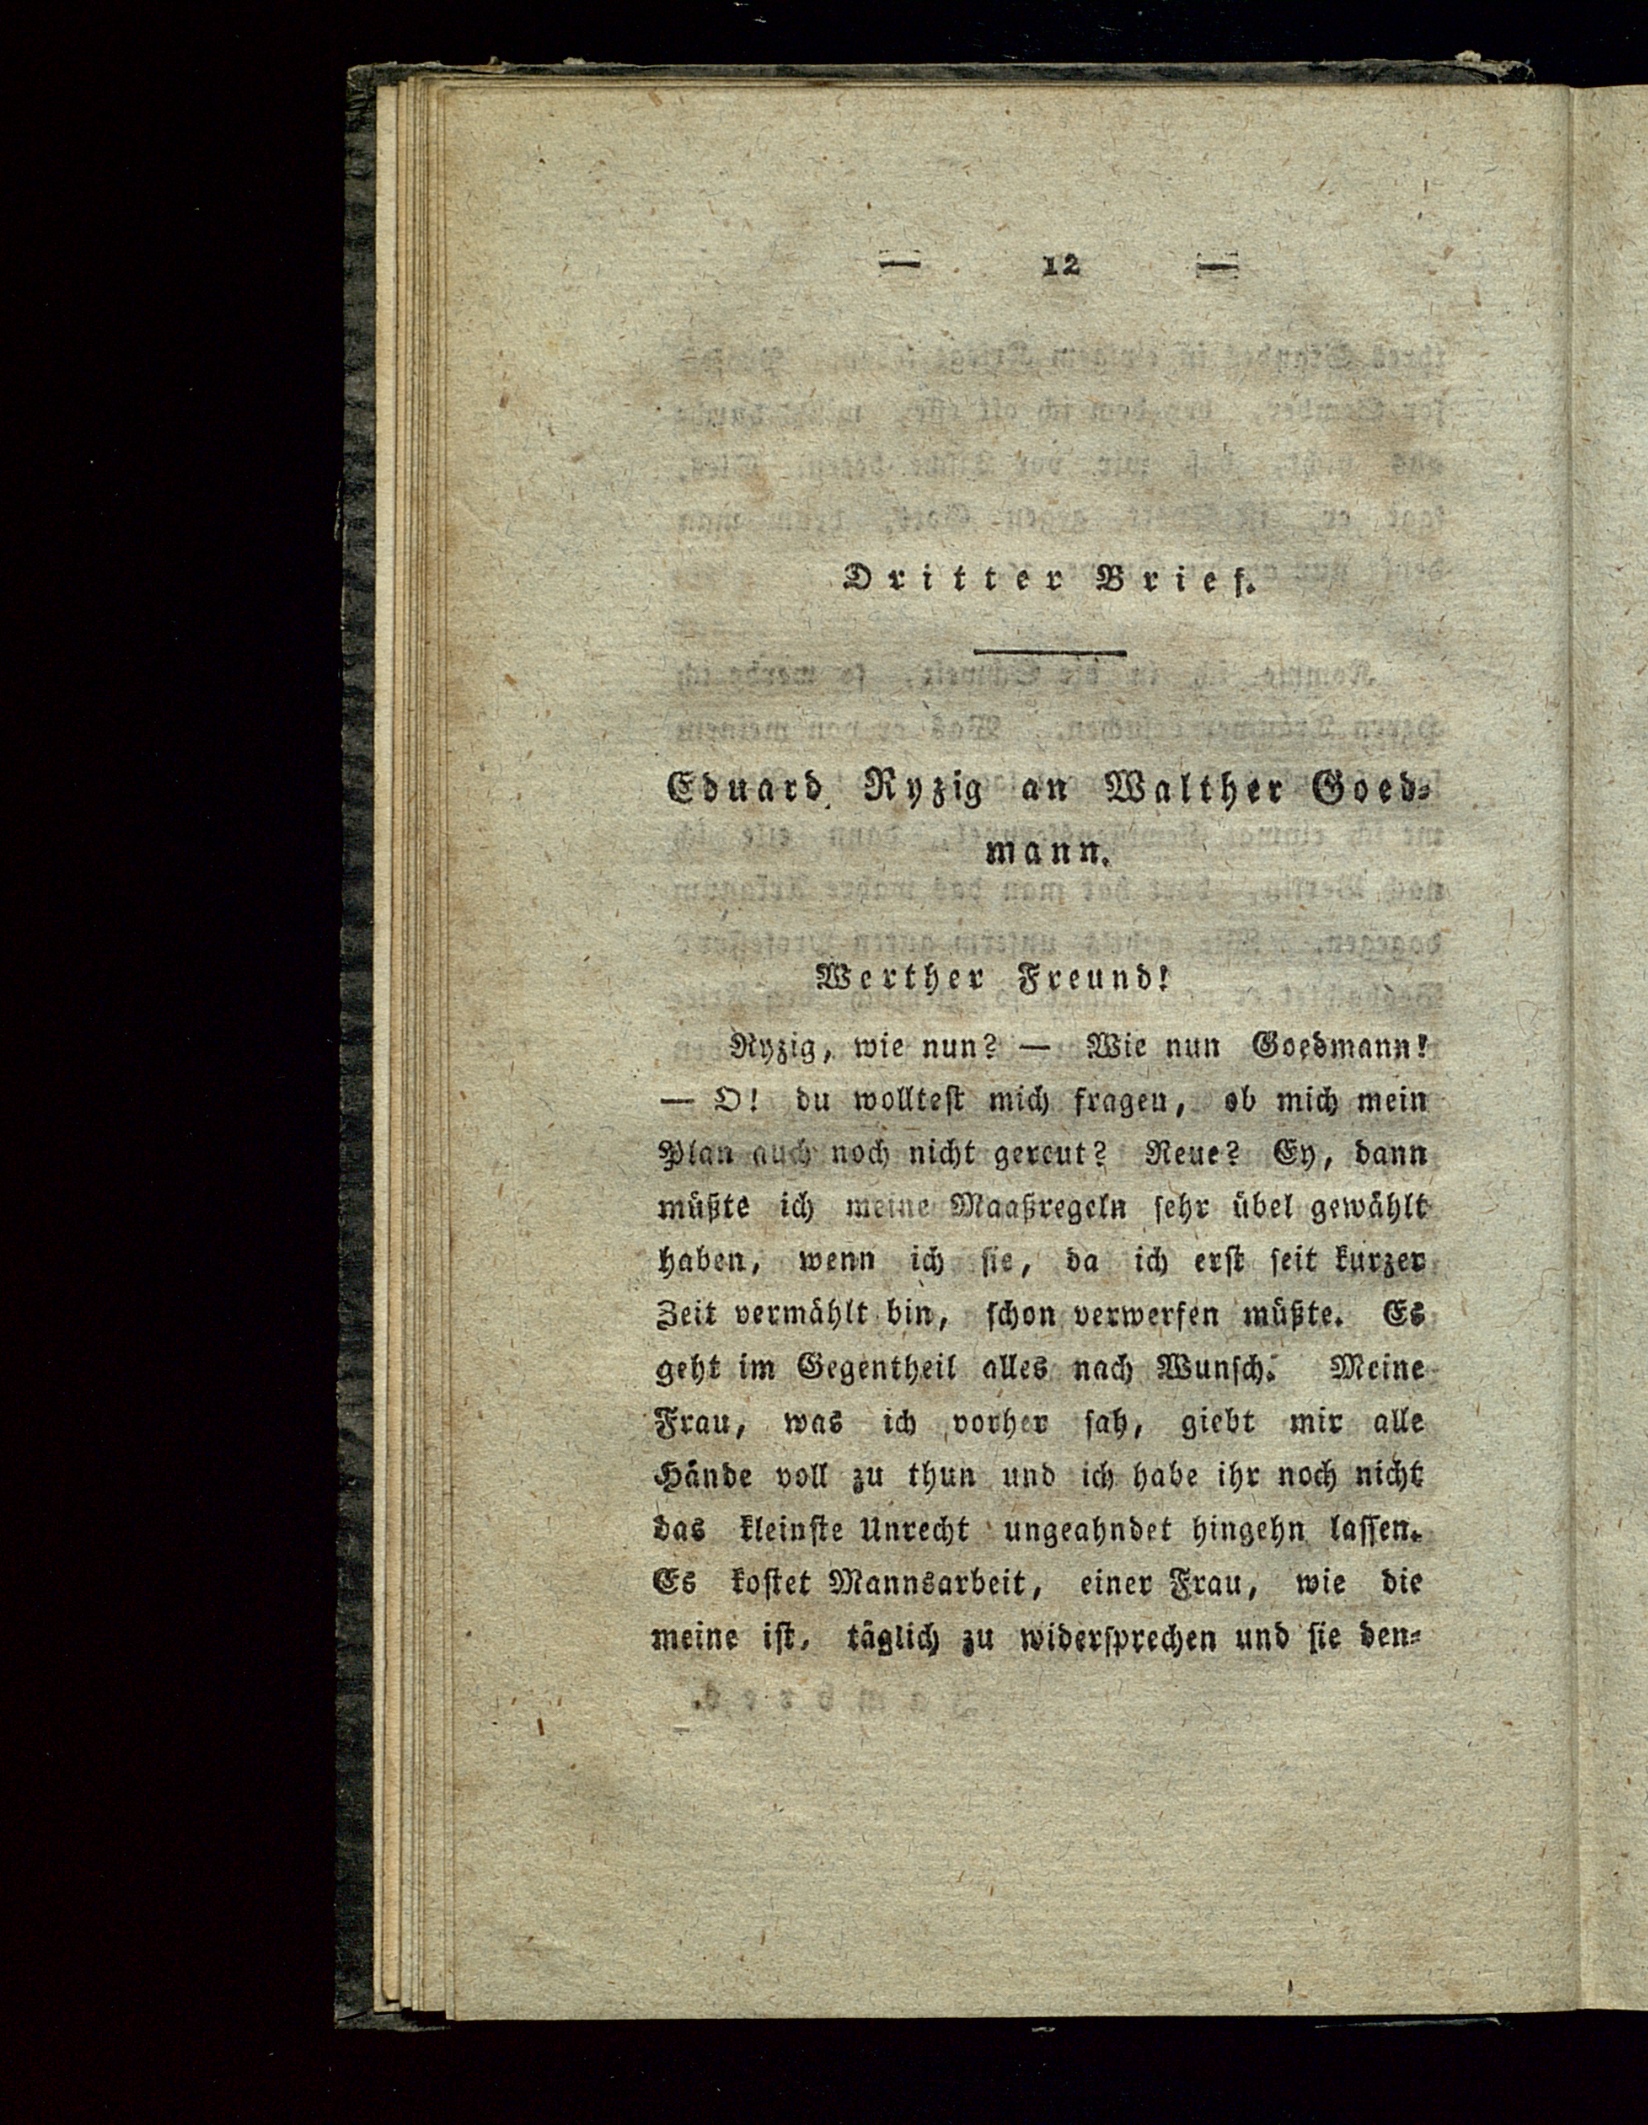 — 12 —
Dritter Brief.
Eduard Ryzig an Walther Goed-
mann.
Werther Freund!
Ryzig, wie nun? — Wie nun Goedmann!
— O! du wolltest mich fragen, ob mich mein
Plan auch noch nicht gereut? Reue? Ey, dann
müßte ich meine Maaßregeln sehr übel gewählt
haben, wenn ich sie, da ich erst seit kurzer
Zeit vermählt bin, schon verwerfen müßte. Es
geht im Gegentheil alles nach Wunsch. Meine
Frau, was ich vorher sah, giebt mir alle
Hände voll zu thun und ich habe ihr noch nicht
das kleinste Unrecht ungeahndet hingehn lassen.
Es kostet Mannsarbeit, einer Frau, wie die
meine ist, täglich zu widersprechen und sie den-